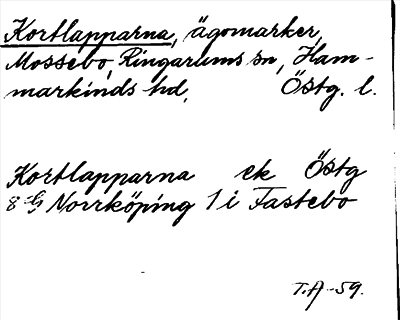 Kortlapparna, ägomarker,
Mossebo, Ringarums sn, Ham-
markinds hd, Östg. l.
Kortlapparna ek Östg
8 Norrköping 1 i Fastebo
T.A-59.